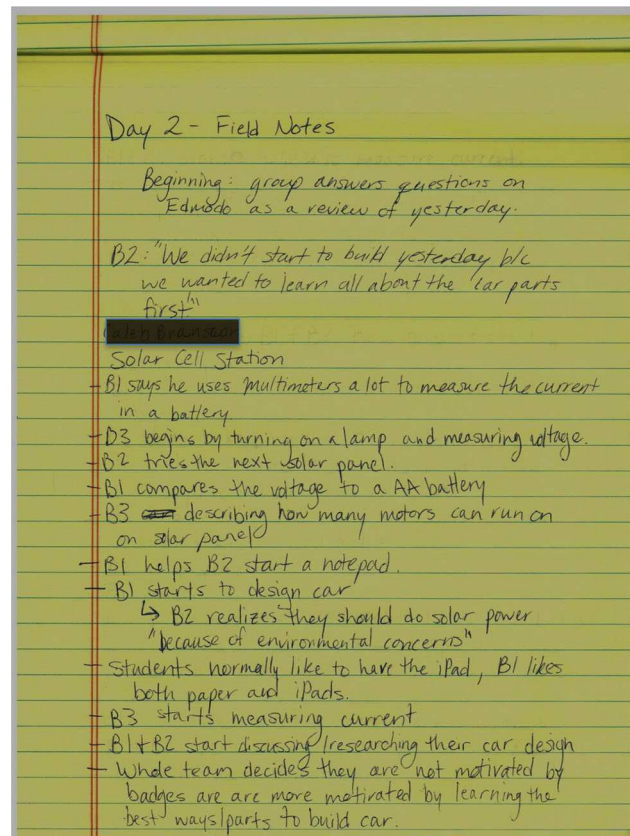 Day 2 - Field Notes
Beginning: group answers questions on
Edmodo as a review of yesterday.
B2: "We didn't start to build yesterday b/c
we wanted to learn all about the car parts
first"
Solar Cell Station
- B1 says he uses multimeters a lot to measure the current
in a battery
- B3 begins by turning on a lamp and measuring voltage.
- B2 tries the next solar panel.
- B1 compares the voltage to a AA battery
- B3 describing how many motors can run on
on solar panel
- B1 helps B2 start a notepad.
- B1 starts to design car
↳ B2 realizes they should do solar power
"because of environmental concerns"
- Students normally like to have the iPad, B1 likes
both paper and iPads.
- B3 starts measuring current
- B1 + B2 start discussing/researching their car design
- Whole team decides they are not motivated by
badges are are more motivated by learning the
best ways/parts to build car.